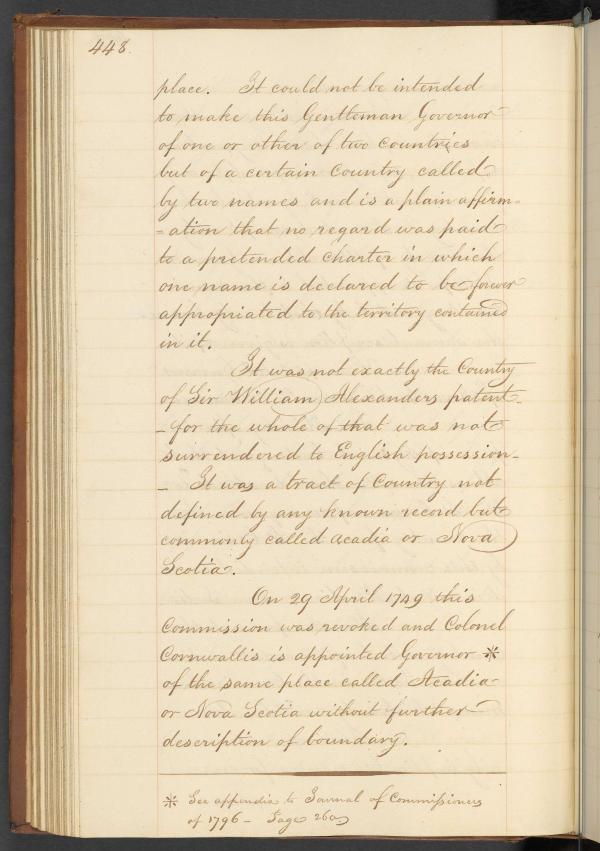 448.
place. It could not be intended
to make this Gentleman Governor
of one or other of two Countries
but of a certain Country called
by two names and is a plain affirm=
=ation that no regard was paid
to a pretended charter in which
one name is declared to be forever
appropriated to the territory contained
in it.
It was not exactly the Country
of Sir William Alexanders patent-
-for the whole of that was not
surrendered to English possession-
- It was a tract of Country not
defined by any known record but
commonly called Acadia or Nova
Scotia.
On 29 April 1749 this
Commission was revoked and Colonel
Cornwallis is appointed Governor *
of the same place called Acadia
or Nova Scotia without further
description of boundary.
* See appendix to Journal of Commissioners
of 1796 - Page 260